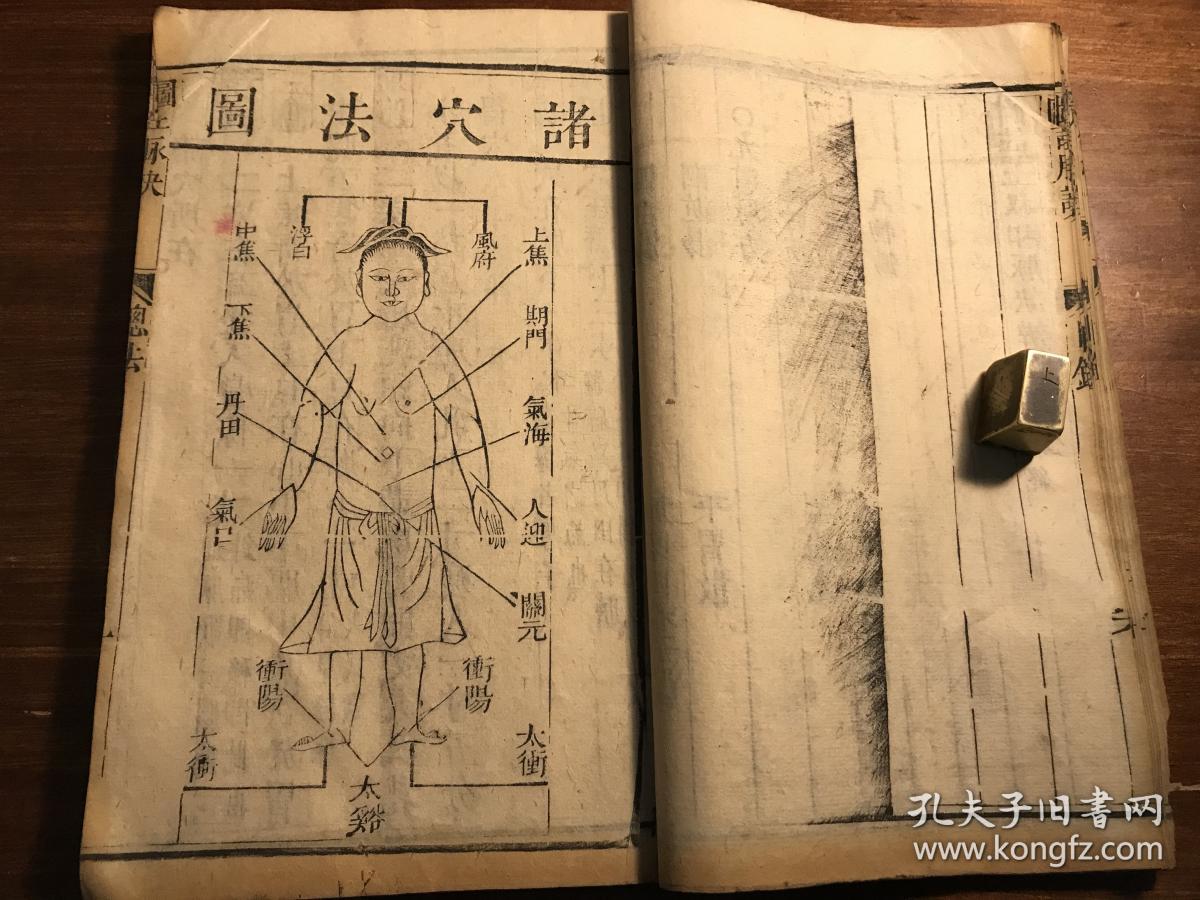 諸穴法圖
風府
浮白
上焦
期門
氣海
人迎
關元
衝陽
太衝
中焦
下焦
丹田
氣口
衝陽
太衝
太谿
總法
上
孔夫子旧書网
www.kongfz.com